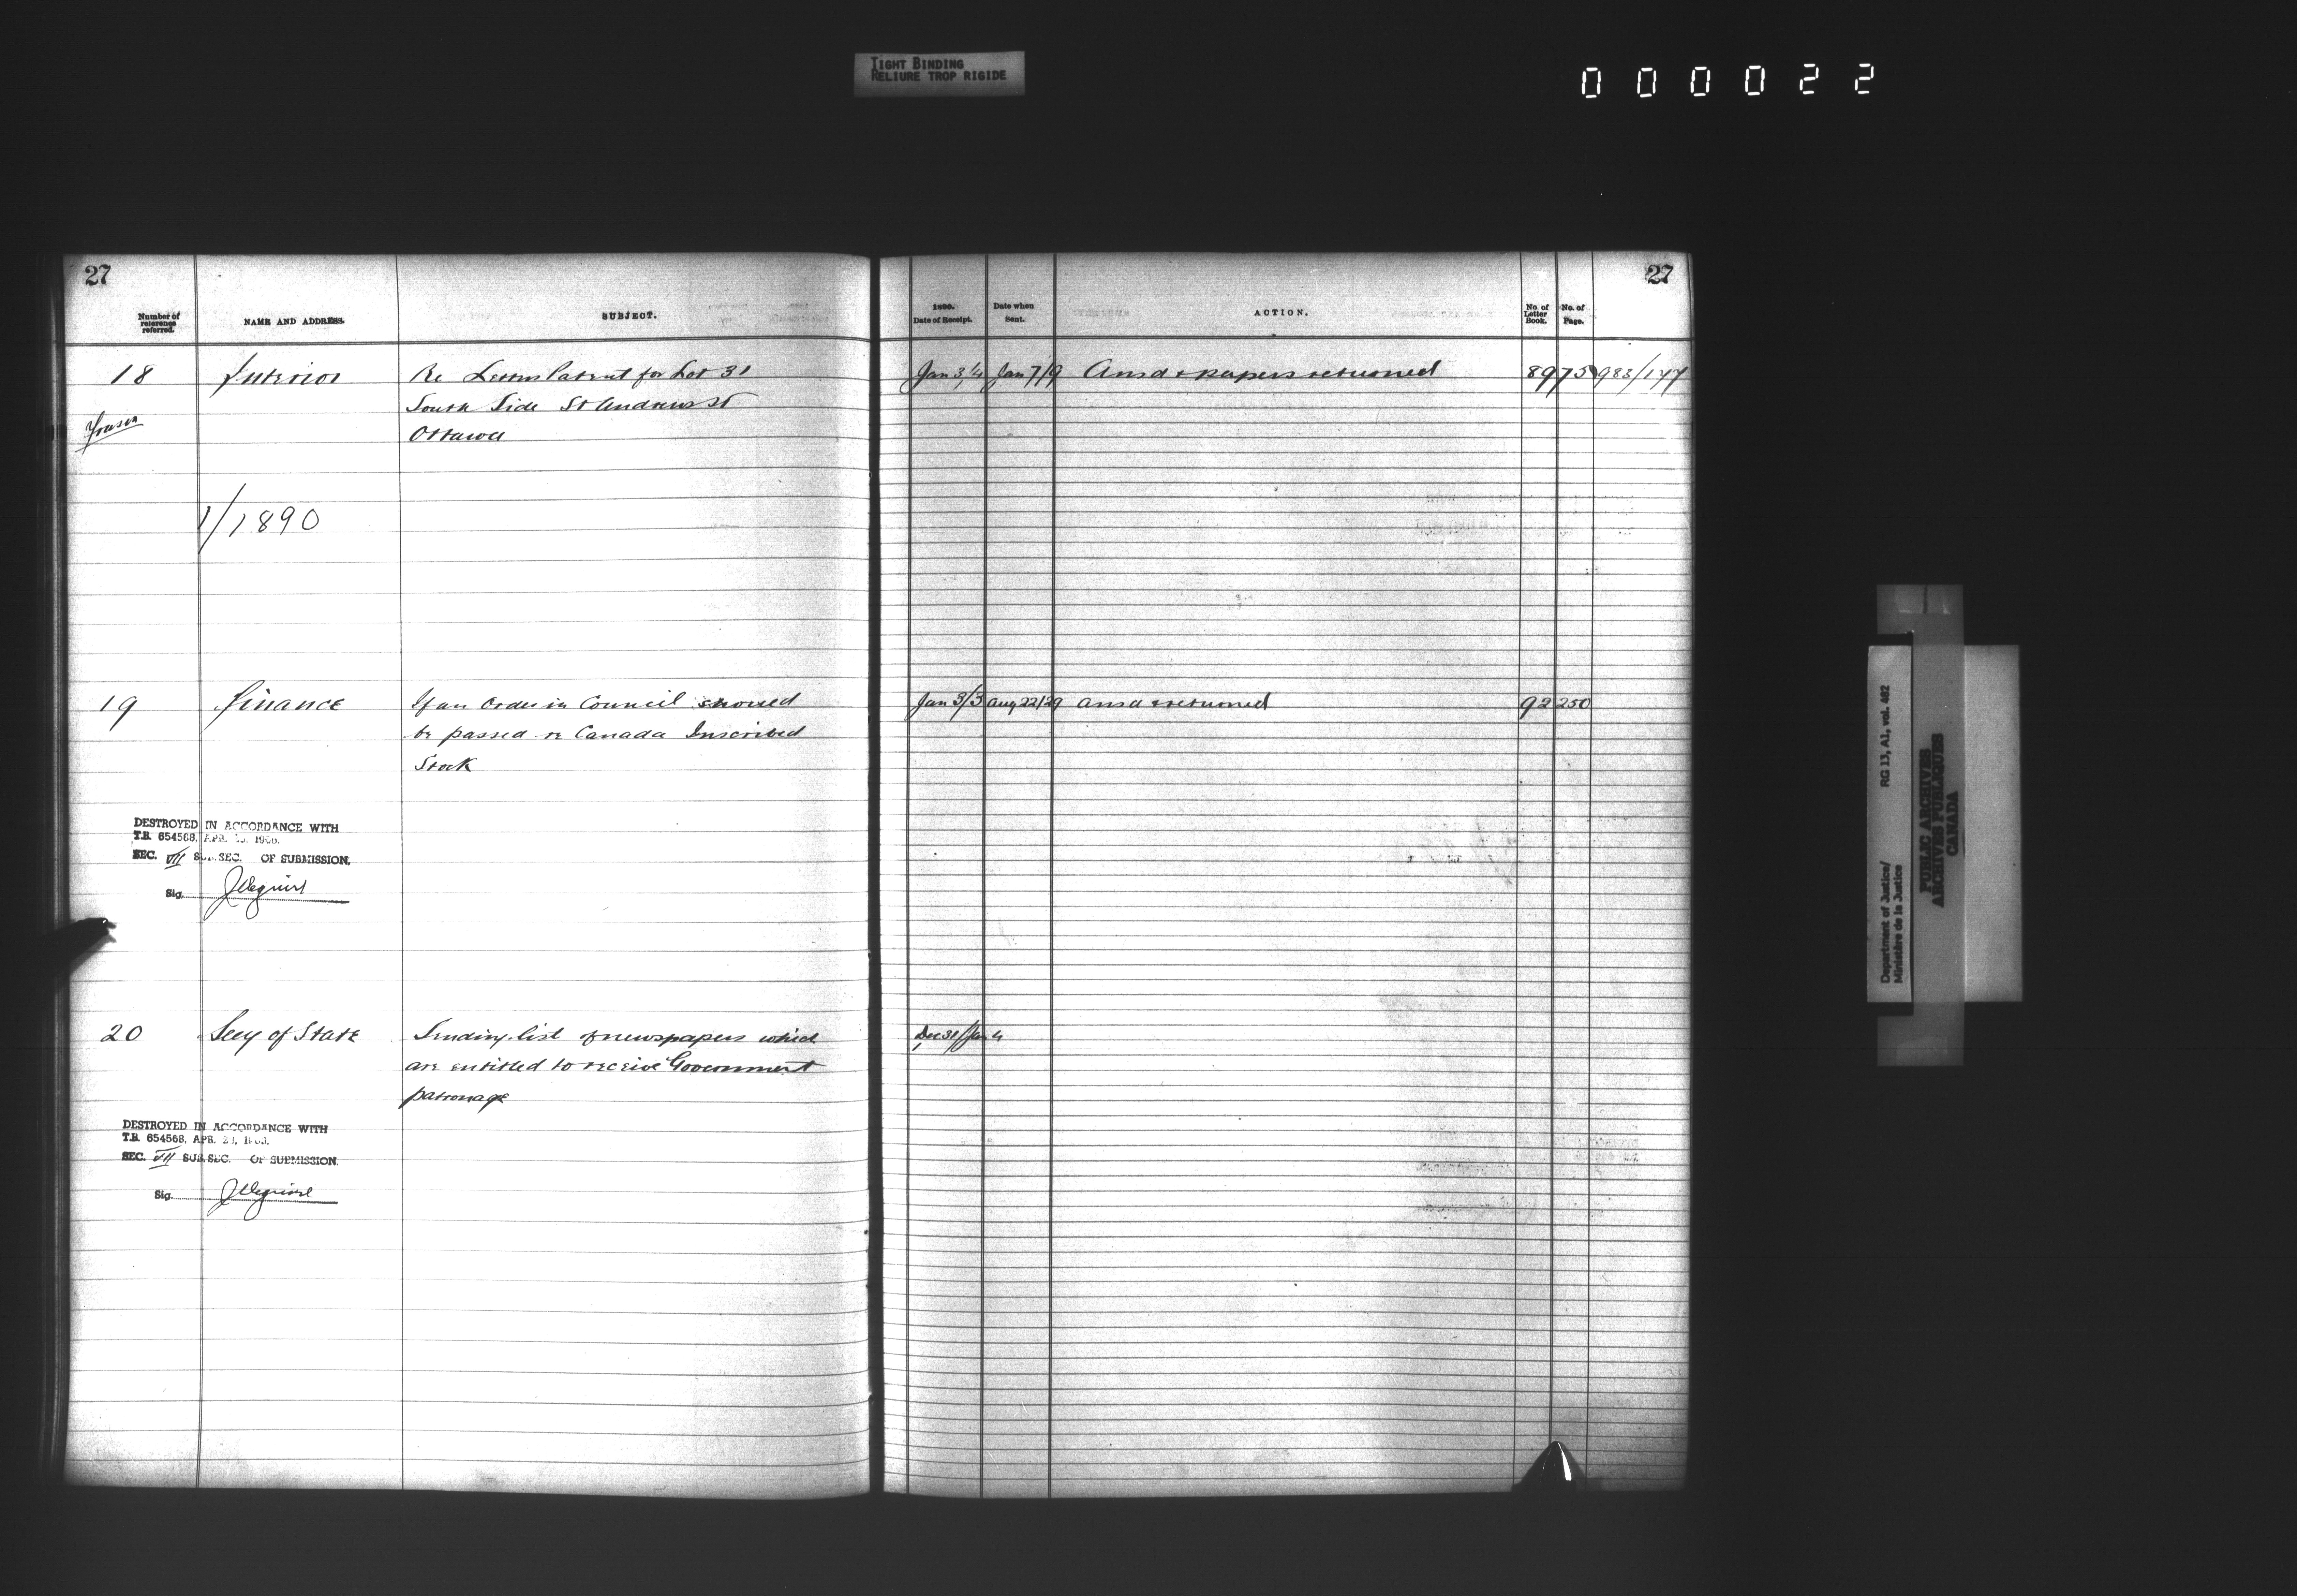 TIGHT BINDING
RELIURE TROP RIGIDE
000022
27
Number of reference referred.
NAME AND ADDRESS.
SUBJECT.
18
Interior
Re Letters Patent for Lot 31
South Side St Andrew St
Ottawa
1/1890
19
Finance
If an Order in Council should
be passed re Canada Inscribed
Stock
DESTROYED IN ACCORDANCE WITH
T.B. 654568, APR. 1966.
SEC. VII SUB. SEC. OF SUBMISSION.
Sig.
20
Secy of State
Sending list of newspapers which
are entitled to receive Government
patronage
DESTROYED IN ACCORDANCE WITH
T.B. 654568, APR.
SEC. VII SUB. SEC. OF SUBMISSION.
Sig.
27
1890.
Date of Receipt.
Date when Sent.
ACTION.
No. of Letter Book.
No. of Page.
Jan 3/4 Jan 7/9 Ansd & papers returned 89 75 983/147
Jan 3/3 Aug 22/29 ansd & returned 92 250
Dec 31/Jan 4
Department of Justice/ RG 13, A1, vol. 462
Ministère de la Justice
PUBLIC ARCHIVES
ARCHIVES PUBLIQUES
CANADA